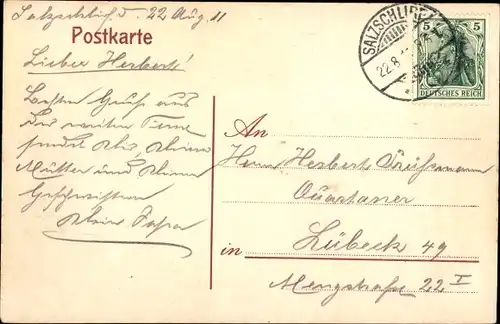 Salzschlirf d. 22 Aug. 11
Postkarte
Lieber Herbert!
Besten Gruß aus
der weiten Ferne
sendet dir deine
Mutter und deinen
Geschwistern
dein Papa
SALZSCHLIRF
22.8.
5 5
DEUTSCHES REICH
An
Herrn Herbert
Quartaner
in Lübeck 49
Mengstraße 22 I